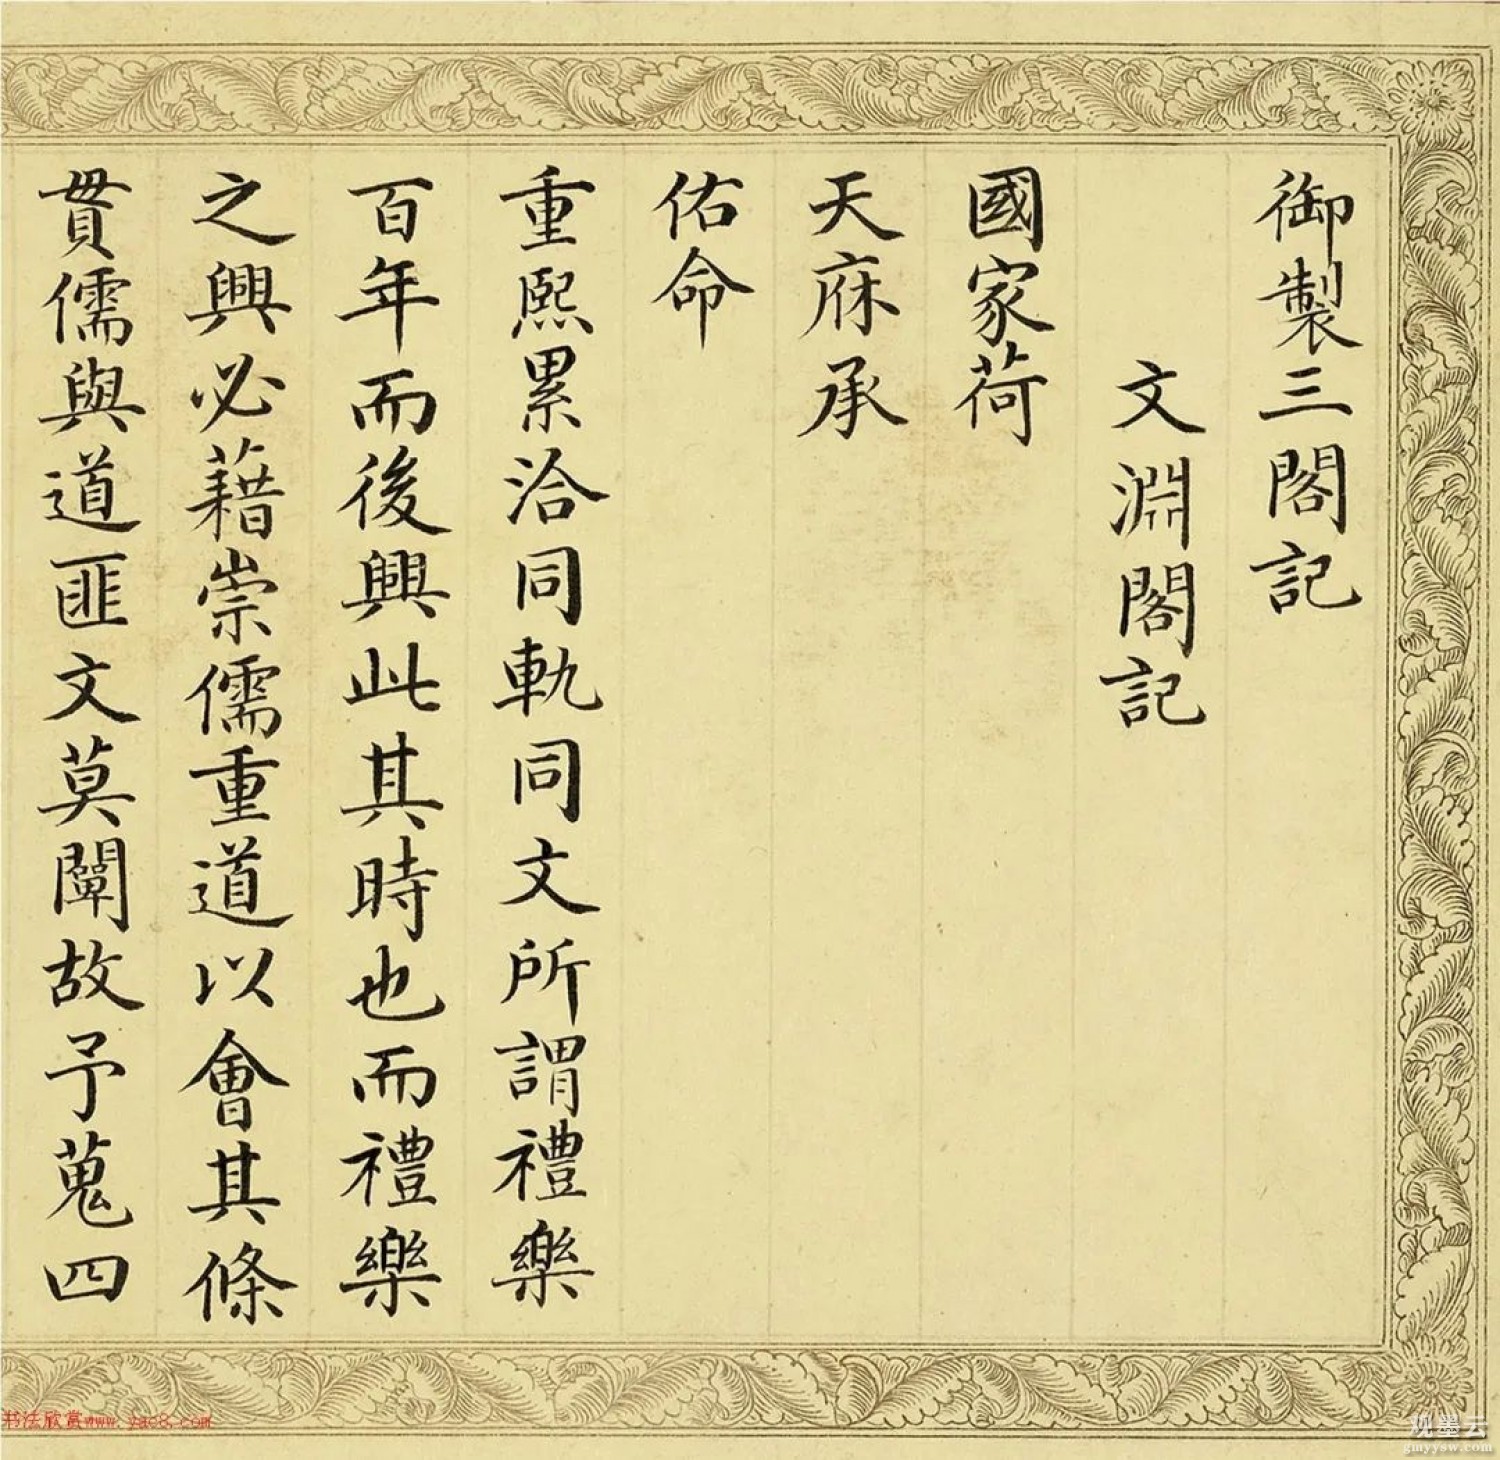 御製三閣記
文淵閣記
國家荷
天庥承
佑命
重熙累洽同軌同文所謂禮樂
百年而後興此其時也而禮樂
之興必藉崇儒重道以會其條
貫儒與道匪文莫闡故予蒐四
书法欣赏www.yac8.com
观墨云
gmyysw.com